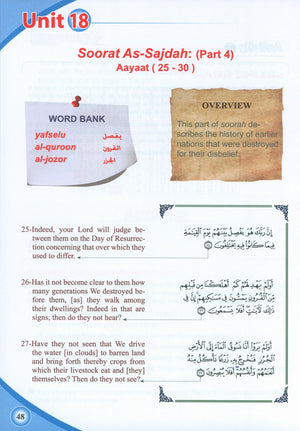 Unit 18
Soorat As-Sajdah: (Part 4)
Aayaat ( 25 - 30 )
WORD BANK
yafselu يفصل
al-quroon القرون
al-jozor الجرز
OVERVIEW
This part of soorah de-
scribes the history of earlier
nations that were destroyed
for their disbelief.
25-Indeed, your Lord will judge be-
tween them on the Day of Resurrec-
tion concerning that over which they
used to differ.
إِنَّ رَبَّكَ هُوَ يَفْصِلُ بَيْنَهُمْ يَوْمَ الْقِيَامَةِ
فِيمَا كَانُوا فِيهِ يَخْتَلِفُونَ
26-Has it not become clear to them how
many generations We destroyed be-
fore them, [as] they walk among
their dwellings? Indeed in that are
signs; then do they not hear?
أَوَلَمْ يَهْدِ لَهُمْ كَمْ أَهْلَكْنَا مِن قَبْلِهِم
مِّنَ الْقُرُونِ يَمْشُونَ فِي مَسَاكِنِهِمْ إِنَّ فِي
ذَٰلِكَ لَآيَاتٍ أَفَلَا يَسْمَعُونَ
27-Have they not seen that We drive
the water [in clouds] to barren land
and bring forth thereby crops from
which their livestock eat and [they]
themselves? Then do they not see?
أَوَلَمْ يَرَوْا أَنَّا نَسُوقُ الْمَاءَ إِلَى الْأَرْضِ
الْجُرُزِ فَنُخْرِجُ بِهِ زَرْعًا تَأْكُلُ مِنْهُ
أَنْعَامُهُمْ وَأَنفُسُهُمْ أَفَلَا يُبْصِرُونَ
48